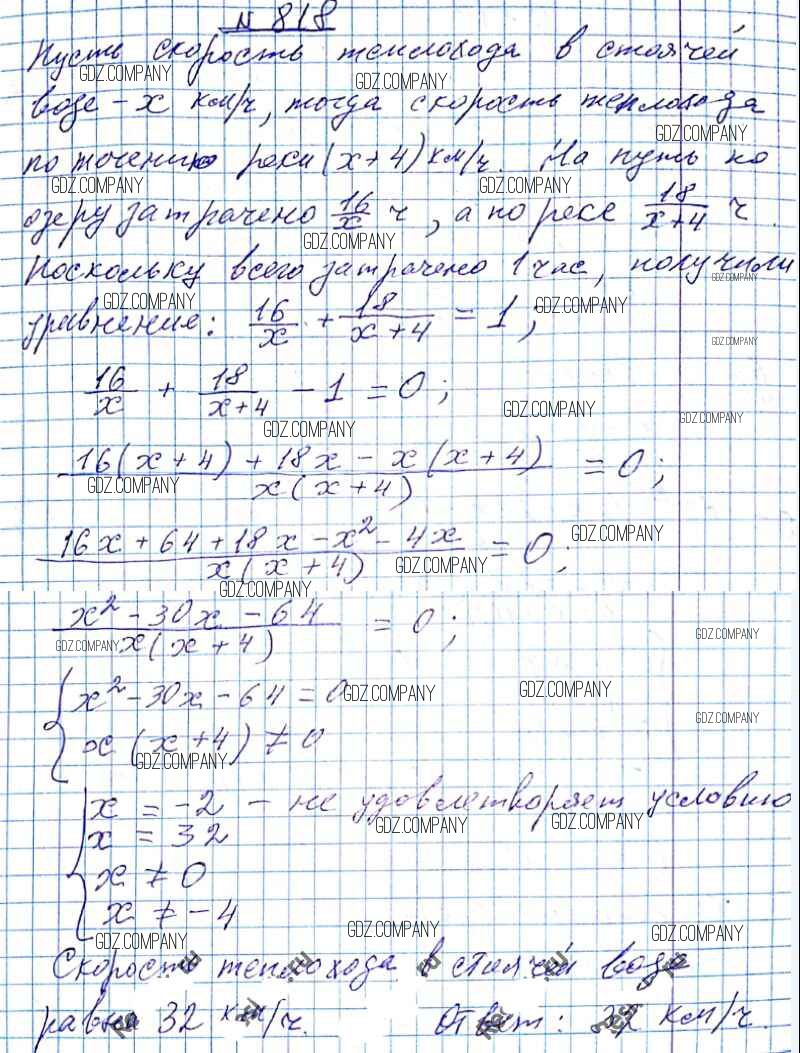 N 818
Пусть скорость теплохода в стоячей
GDZ.COMPANY GDZ.COMPANY
воде - x км/ч, тогда скорость теплохода
GDZ.COMPANY
по течению реки (x+4) км/ч. На путь по
GDZ.COMPANY GDZ.COMPANY
озеру затрачено 16/x ч, а по реке 18/(x+4) ч.
GDZ.COMPANY
Поскольку всего затрачено 1 час, получили
GDZ.COMPANY GDZ.COMPANY GDZ.COMPANY
уравнение: 16/x + 18/(x+4) = 1;
GDZ.COMPANY
16/x + 18/(x+4) - 1 = 0;
GDZ.COMPANY GDZ.COMPANY GDZ.COMPANY
(16(x+4) + 18x - x(x+4))/(x(x+4)) = 0;
GDZ.COMPANY
(16x + 64 + 18x - x² - 4x)/(x(x+4)) = 0;
GDZ.COMPANY GDZ.COMPANY
GDZ.COMPANY
(x² - 30x - 64)/(x(x+4)) = 0;
GDZ.COMPANY GDZ.COMPANY
x² - 30x - 64 = 0
GDZ.COMPANY GDZ.COMPANY
GDZ.COMPANY
x(x+4) ≠ 0
GDZ.COMPANY
x = -2 - не удовлетворяет условию
GDZ.COMPANY GDZ.COMPANY
x = 32
x ≠ 0
x ≠ -4
GDZ.COMPANY GDZ.COMPANY GDZ.COMPANY
Скорость теплохода в стоячей воде
равна 32 км/ч. Ответ: 32 км/ч.